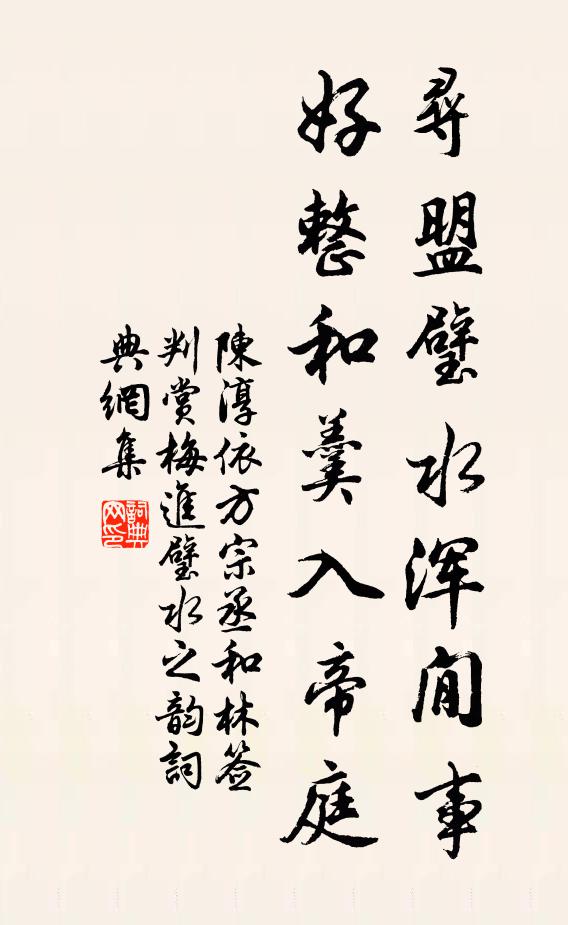 尋盟璧水浑閒事
好整和羹入帝庭
陳淳依方宗丞和林签
判賞梅進璧水之韵詞
典網集
詞典网印